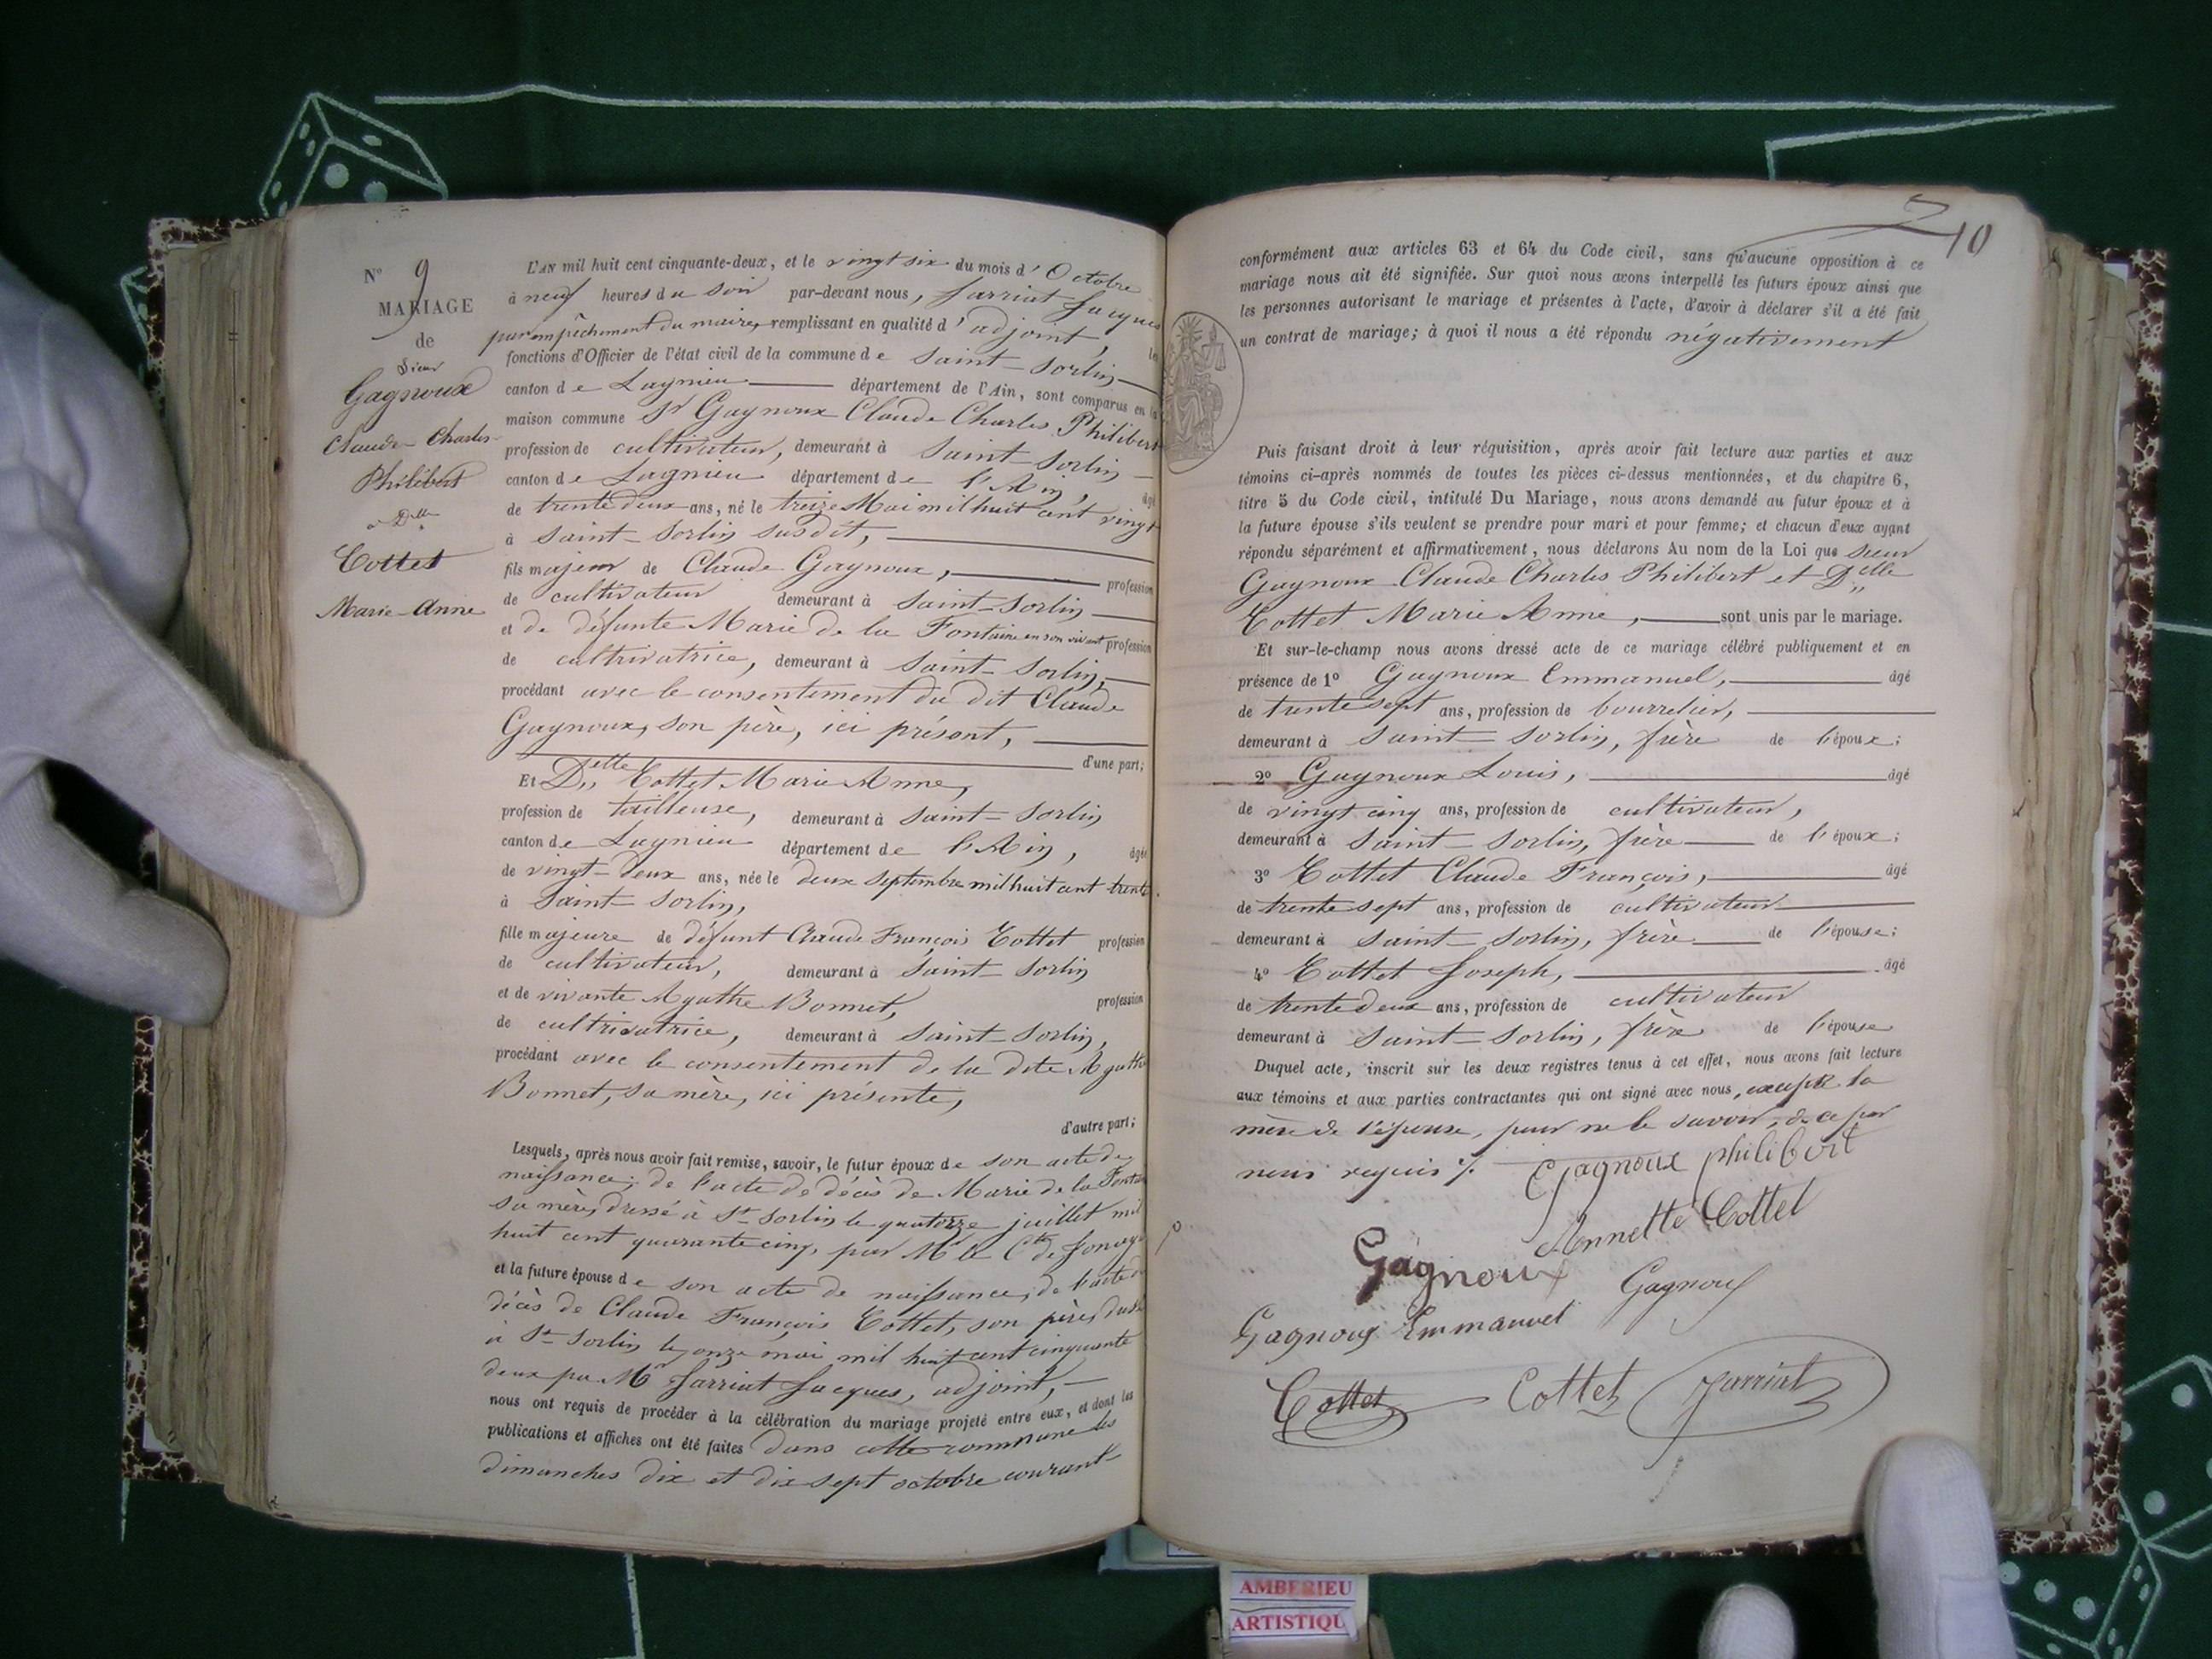 N° 9
MARIAGE
de
Sieur
Gagnoux
Claude-Charles-
Philibert
& Dlle
Cottet
Marie-Anne
L'AN mil huit cent cinquante-deux, et le vingt six du mois d'Octobre
à neuf heures du soir par-devant nous, Jarriat Jacques
par empêchement du maire, remplissant en qualité d'adjoint, les
fonctions d'Officier de l'état civil de la commune de Saint-Sorlin
canton de Lagnieu département de l'Ain, sont comparus en la
maison commune Sr Gagnoux Claude Charles Philibert
profession de cultivateur, demeurant à Saint-Sorlin
canton de Lagnieu département de l'Ain, âgé
de trente deux ans, né le treize Mai mil huit cent vingt
à Saint-Sorlin susdit,
fils majeur de Claude Gagnoux, profession
de cultivateur demeurant à Saint-Sorlin
et de défunte Marie de la Fontaine en son vivant profession
de cultivatrice, demeurant à Saint-Sorlin,
procédant avec le consentement du dit Claude
Gagnoux, son père, ici présent,
d'une part;
Et Dlle Cottet Marie Anne,
profession de tailleuse, demeurant à Saint-Sorlin
canton de Lagnieu département de l'Ain, âgée
de vingt-deux ans, née le deux Septembre mil huit cent trente
à Saint-Sorlin,
fille majeure de défunt Claude François Cottet profession
de cultivateur, demeurant à Saint-Sorlin
et de vivante Agathe Bonnet, profession
de cultrivatrice, demeurant à Saint-Sorlin,
procédant avec le consentement de la dite Agathe
Bonnet, sa mère, ici présente,
d'autre part;
Lesquels, après nous avoir fait remise, savoir, le futur époux de son acte de
naissance; de l'acte de décès de Marie de la
sa mère, dressé à St Sorlin le quatorze juillet mil
huit cent quarante cinq, par Mr le Cte de
et la future épouse de son acte de naissance, de l'acte de
décès de Claude François Cottet, son père,
à St Sorlin le onze mai mil huit cent cinquante
deux par Mr Jarriat Jacques, adjoint,
nous ont requis de procéder à la célébration du mariage projeté entre eux, et dont les
publications et affiches ont été faites dans cette commune les
dimanches dix et dix sept octobre courant
10
conformément aux articles 63 et 64 du Code civil, sans qu'aucune opposition à ce
mariage nous ait été signifiée. Sur quoi nous avons interpellé les futurs époux ainsi que
les personnes autorisant le mariage et présentes à l'acte, d'avoir à déclarer s'il a été fait
un contrat de mariage; à quoi il nous a été répondu négativement
Puis faisant droit à leur réquisition, après avoir fait lecture aux parties et aux
témoins ci-après nommés de toutes les pièces ci-dessus mentionnées, et du chapitre 6,
titre 5 du Code civil, intitulé Du Mariage, nous avons demandé au futur époux et à
la future épouse s'ils veulent se prendre pour mari et pour femme; et chacun d'eux ayant
répondu séparément et affirmativement, nous déclarons Au nom de la Loi que sieur
Gagnoux Claude Charles Philibert et Dlle
Cottet Marie Anne, sont unis par le mariage.
Et sur-le-champ nous avons dressé acte de ce mariage célébré publiquement et en
présence de 1° Gagnoux Emmanuel, âgé
de trente sept ans, profession de bourrelier,
demeurant à Saint-Sorlin, frère de l'époux;
2° Gagnoux Louis, âgé
de vingt cinq ans, profession de cultivateur,
demeurant à Saint-Sorlin, frère de l'époux;
3° Cottet Claude François, âgé
de trente sept ans, profession de cultivateur
demeurant à Saint-Sorlin, frère de l'épouse;
4° Cottet Joseph, âgé
de trente deux ans, profession de cultivateur
demeurant à Saint-Sorlin, frère de l'épouse
Duquel acte, inscrit sur les deux registres tenus à cet effet, nous avons fait lecture
aux témoins et aux parties contractantes qui ont signé avec nous, excepté la
mère de l'épouse, pour ne le savoir, de ce par
nous requis %. Gagnoux philibert
Annette Cottet
Gagnoux
Gagnoux
Gagnoux Emmanuel
Cottet Cottet Jarriat
AMBERIEU
ARTISTIQU